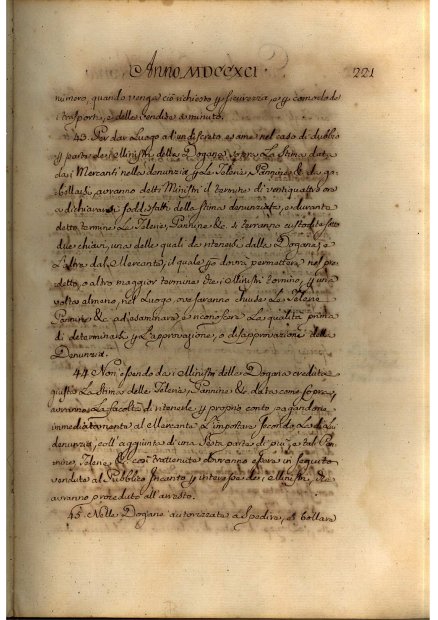 Anno MDCCXCI. 221
numero, quando venga ciò richiesto p sicurezza, e p comodo de
trasporti, e delle vendite a minuto.
43. Per dar Luogo a l'un discreto esame nel caso di dubbio
p parte de Ministri della Dogana sopra La Stima data
dai Mercanti nella denunzia p Le Telerie Pannine &c da
bollarsi, avranno detti Ministri il termine di ventiquattro ore
a dichiararsi soddisfatti della stima denunziata, e durante
detto termine Le Telerie, Pannine &c. si terranno custodite sotto
due chiavi, una delle quali da tenersi della Dogana, e
L'altra dal Mercante, il quale
detto, o altro maggior termine che i Ministri p una
volta almeno, nel Luogo, ove saranno chiuse Le Telerie
Pannine &c. ad esaminare, e riconoscere La qualità prima
di determinarsi p L'approvazione, o disapprovazione della
Denunzia.
44. Non essendo dai Ministri della Dogana creduta
giusta La Stima delle Telerie, Pannine &c data come sopra,
avranno La facoltà di ritenerle p proprio conto pagandone
immediatamente al Mercante L'importare secondo La di Lui
denunzia, coll'aggiunta di una Sesta parte di più, e tali Pan-
nine, Telerie &c. così trattenute dovranno essere in seguito
vendute al Pubblico Incanto p interesse dei Ministri, che
avranno proceduto all'arresto.
45. Nelle Dogane autorizzate a Spedire, e bollare